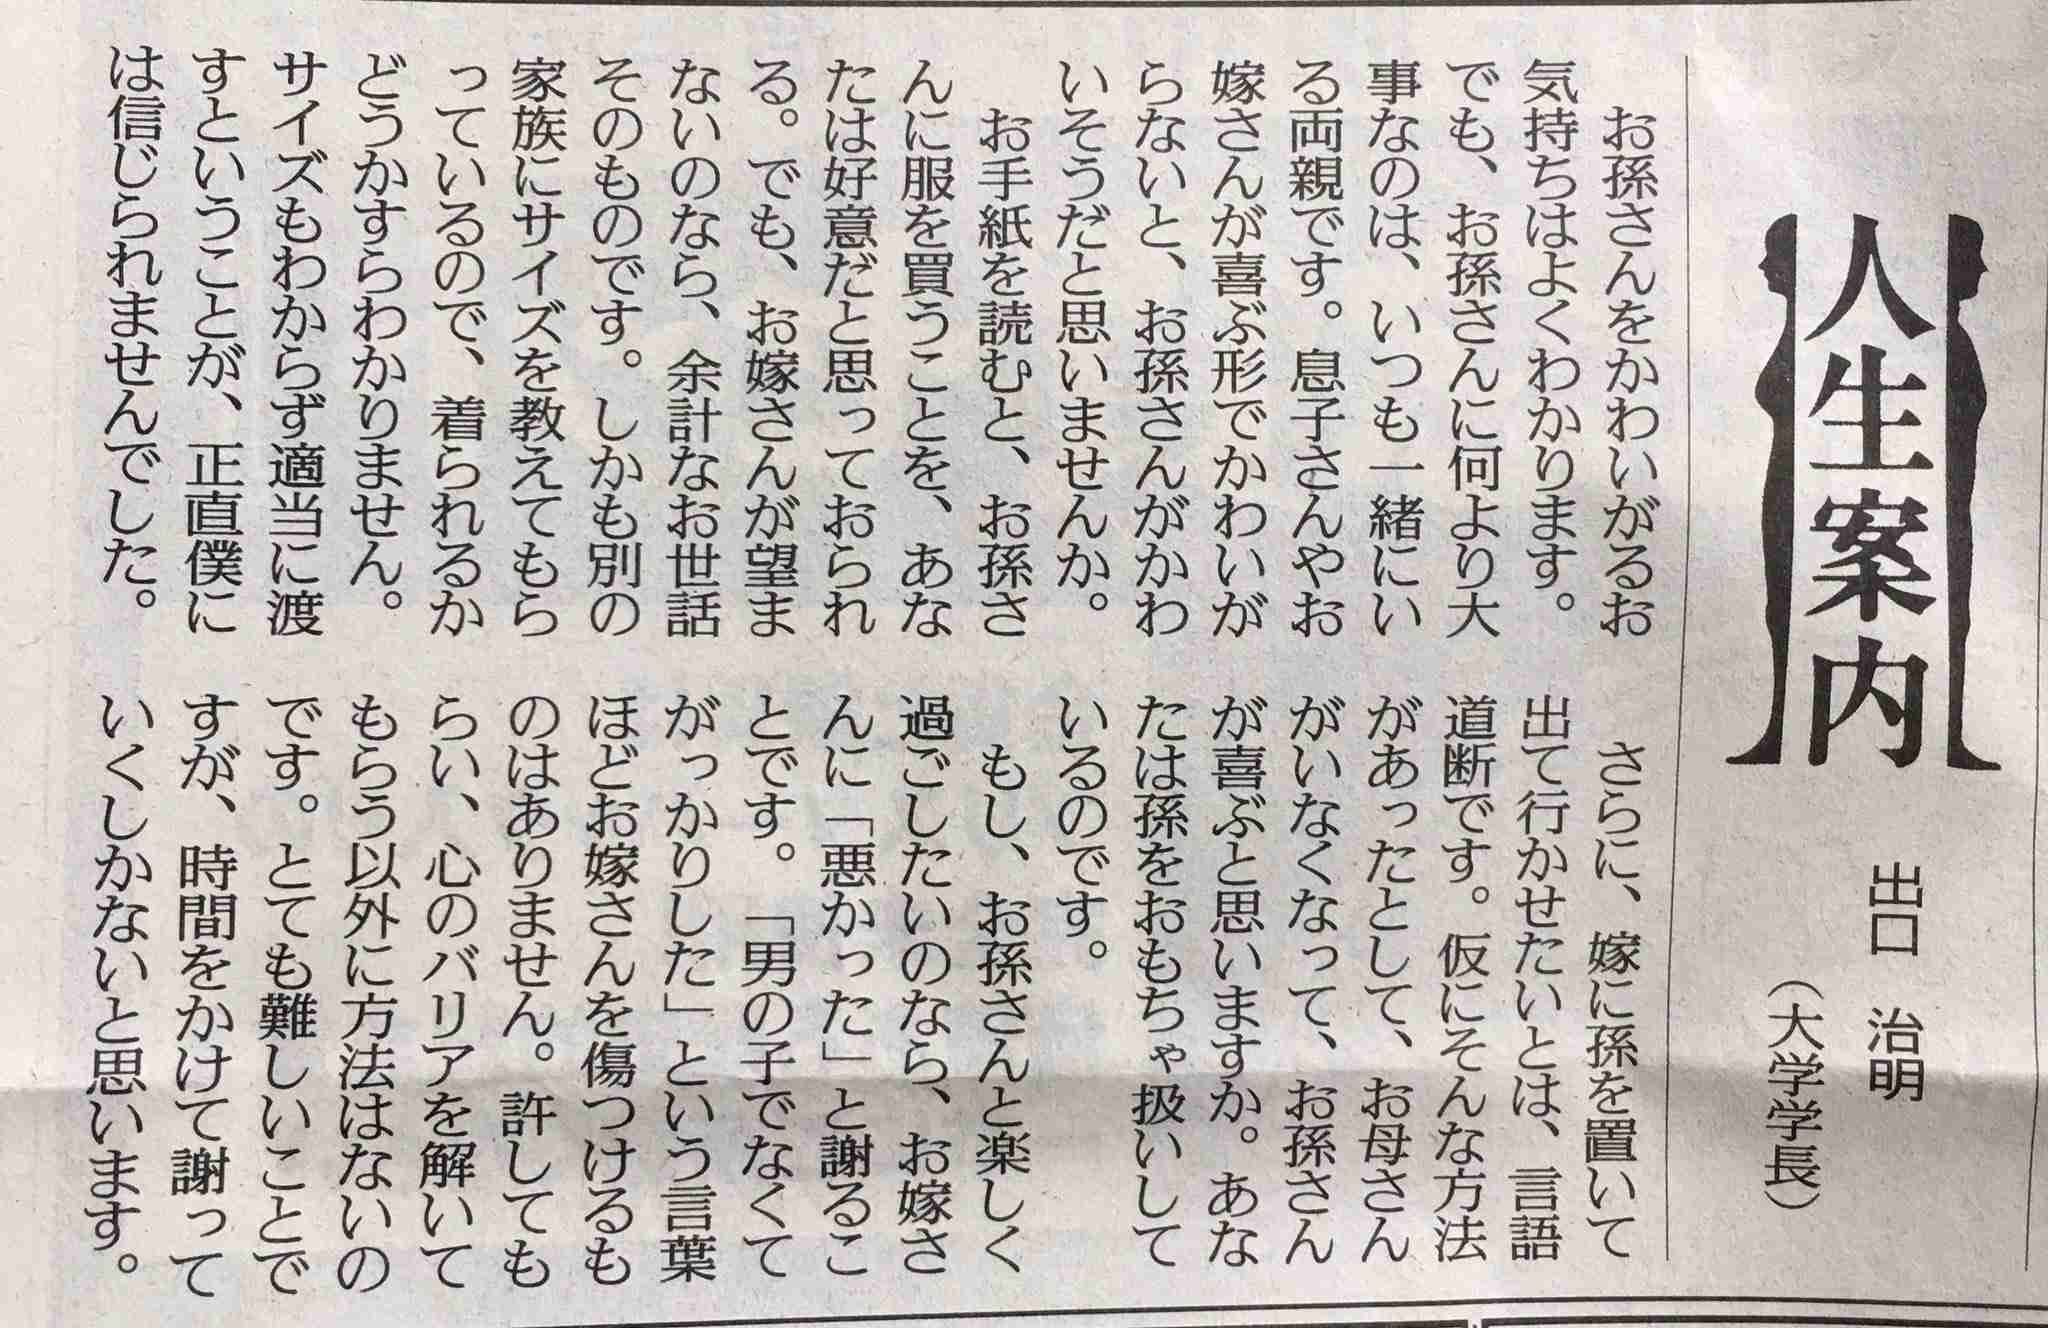 人生案内
出口 治明
(大学学長)
お孫さんをかわいがるお
気持ちはよくわかります。
でも、お孫さんに何より大
事なのは、いつも一緒にい
る両親です。息子さんやお
嫁さんが喜ぶ形でかわいが
らないと、お孫さんがかわ
いそうだと思いませんか。
お手紙を読むと、お孫さ
んに服を買うことを、あな
たは好意だと思っておられ
る。でも、お嫁さんが望ま
ないのなら、余計なお世話
そのものです。しかも別の
家族にサイズを教えてもら
っているので、着られるか
どうかすらわかりません。
サイズもわからず適当に渡
すということが、正直僕に
は信じられませんでした。
さらに、嫁に孫を置いて
出て行かせたいとは、言語
道断です。仮にそんな方法
があったとして、お母さん
がいなくなって、お孫さん
が喜ぶと思いますか。あな
たは孫をおもちゃ扱いして
いるのです。
もし、お孫さんと楽しく
過ごしたいのなら、お嫁さ
んに「悪かった」と謝るこ
とです。「男の子でなくて
がっかりした」という言葉
ほどお嫁さんを傷つけるも
のはありません。許しても
らい、心のバリアを解いて
もらう以外に方法はないの
です。とても難しいことで
すが、時間をかけて謝って
いくしかないと思います。